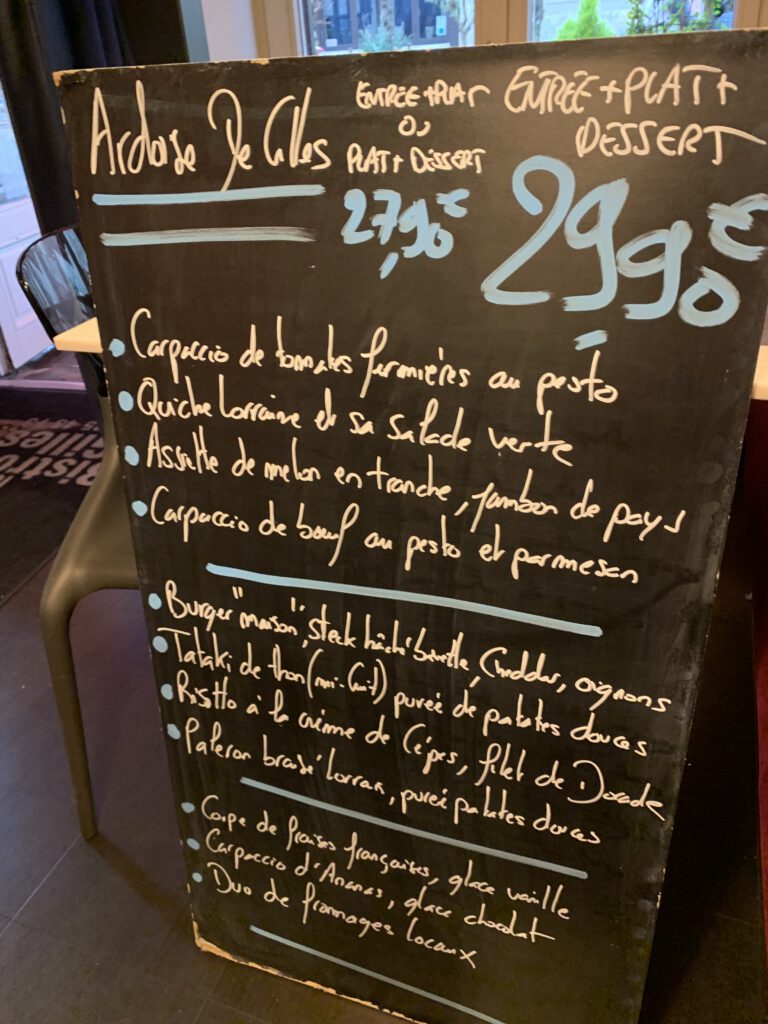 Ardoise De Gilles
ENTREE + PLAT
OU
PLAT + DESSERT
27,90€
ENTREE + PLAT +
DESSERT
29,90€
• Carpaccio de tommates fermières au pesto
• Quiche Lorraine et sa salade verte
• Assiette de melon en tranche, jambon de pays
• Carpaccio de bœuf au pesto et parmesan
• Burger "maison", steck hâché bavette, Cheddar, oignons
• Tataki de thon (mi-cuit) pureé de patates douces
• Risotto à la crème de Cèpes, filet de Dorade
• Paleron braisé Lorrain, pureé patates douces
• Coupe de fraises françaises, glace vanille
• Carpaccio d'Ananas, glace chocolat
• Duo de frommages locaux
Bistro
Gilles